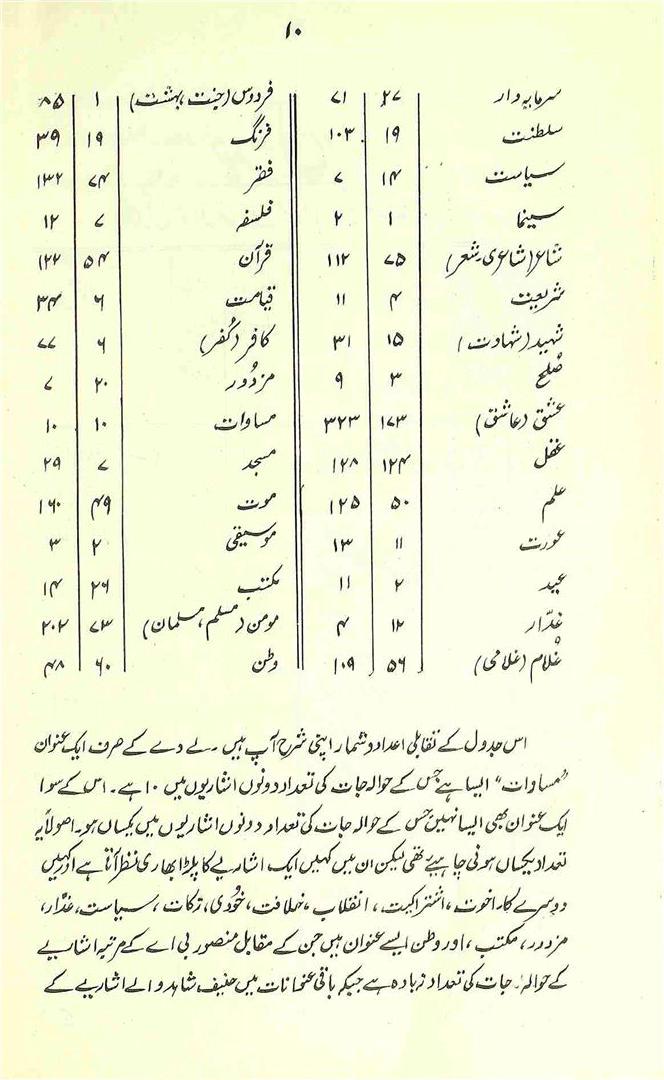 ۱۰
سرمایہ دار ۲۷ ۷۱ فردوس (جنت، بہشت) ۱ ۸۵
سلطنت ۱۹ ۱۰۳ فرنگ ۱۹ ۳۹
سیاست ۱۴ ۷ فقر ۷۴ ۱۳۲
سینما ۱ ۲ فلسفہ ۷ ۱۲
شاعر (شاعری، شعر) ۷۵ ۱۱۲ قرآن ۵۴ ۱۲۲
شریعت ۴ ۱۱ قیامت ۶ ۳۴
شہید (شہادت) ۱۵ ۳۱ کافر (کُفر) ۶ ۷۷
صُلح ۳ ۹ مزدُور ۲۰ ۷
عشق (عاشق) ۱۷۳ ۳۲۳ مساوات ۱۰ ۱۰
عقل ۱۲۴ ۱۲۸ مسجد ۷ ۲۹
علم ۵۰ ۱۲۵ موت ۴۹ ۱۶۰
عورت ۱۱ ۱۳ موسیقی ۲ ۳
عید ۲ ۱۱ مکتب ۲۶ ۱۴
غدّار ۱۲ ۴ مومن (مسلم، مسلمان) ۷۳ ۲۰۲
غلام (غلامی) ۵۶ ۱۰۹ وطن ۶۰ ۴۸
اس جدول کے تقابلی اعداد و شمار اپنی شرح آپ ہیں۔ لے دے کے صرف ایک عنوان
"مساوات" ایسا ہے جس کے حوالہ جات کی تعداد دونوں اشاریوں میں ۱۰ ہے۔ اس کے سوا
ایک عنوان بھی ایسا نہیں جس کے حوالہ جات کی تعداد دونوں اشاریوں میں یکساں ہو۔ اصولاً یہ
تعداد یکساں ہونی چاہیئے تھی لیکن ان میں کہیں ایک اشاریے کا پلڑا بھاری نظر آتا ہے اور کہیں
دوسرے کا۔ اخوت، اشتراکیت، انقلاب، خلافت، خُودی، زکات، سیاست، غدّار،
مزدور، مکتب، اور وطن ایسے عنوان ہیں جن کے مقابل منصور بی اے کے مرتبہ اشاریے
کے حوالہ جات کی تعداد زیادہ ہے جبکہ باقی عنوانات میں حنیف شاہد والے اشاریے کے